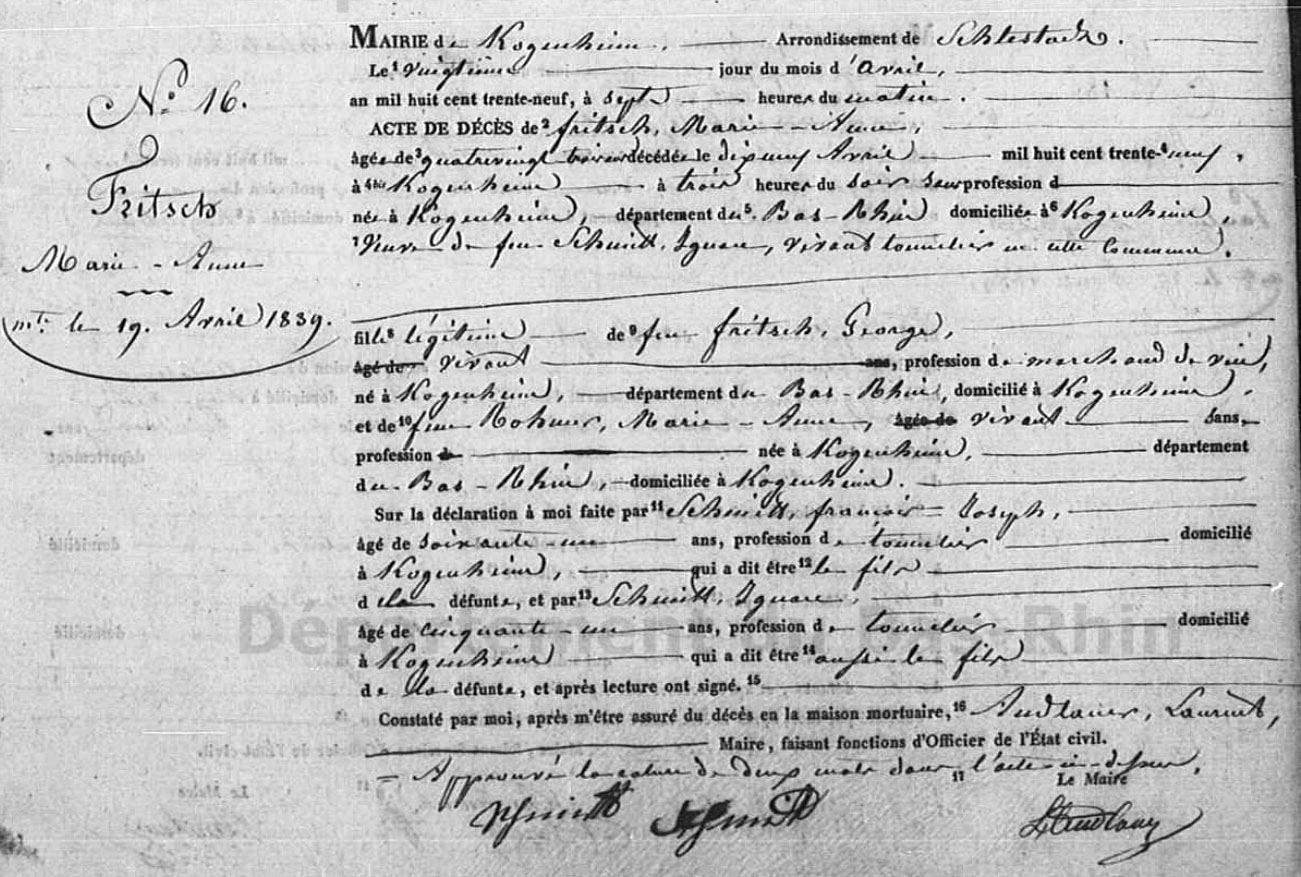 N.° 16.
Fritsch
Marie - Anne
m.te le 19. Avril 1839.
MAIRIE de Kogenheim, Arrondissement de Schlestadt.
Le 1 vingtième jour du mois d'Avril,
an mil huit cent trente-neuf, à sept heures du matin.
ACTE DE DÉCÈS de 2 fritsch, Marie - Anne,
âgée de 3 quatrevingt trois ans décédée le dixneuf Avril mil huit cent trente-4 neuf,
à 4bis Kogenheim à trois heures du soir sans profession d
née à Kogenheim, département du 5. Bas-Rhin domiciliée à 6 Kogenheim,
7 Veuve de feu Schmitt, Ignace, vivant tonnelier en cette Commune.
fille 8 légitime de 9 feu fritsch, George,
âgé de vivant ans, profession de marchand de vin,
né à Kogenheim, département du Bas-Rhin, domicilié à Kogenheim.
et de 10 feue Rohmer, Marie - Anne, âgée de vivant Sans,
profession d née à Kogenheim, département
du Bas-Rhin, domiciliée à Kogenheim.
Sur la déclaration à moi faite par 11 Schmitt, françois-Joseph,
âgé de soixante-un ans, profession de tonnelier domicilié
à Kogenheim, qui a dit être 12 le fils
de la défunte, et par 13 Schmitt, Ignace,
âgé de cinquante-un ans, profession de tonnelier domicilié
à Kogenheim qui a dit être 14 aussi le fils
de la défunte, et après lecture ont signé. 15
Constaté par moi, après m'être assuré du décès en la maison mortuaire, 16 Andlauer, Laurent,
Maire, faisant fonctions d'Officier de l'État civil.
= Approuvé la rature de deux mots dans 17 l'acte ci-dessus.
Le Maire
Schmitt Schmitt LAndlauer
Département du Bas-Rhin